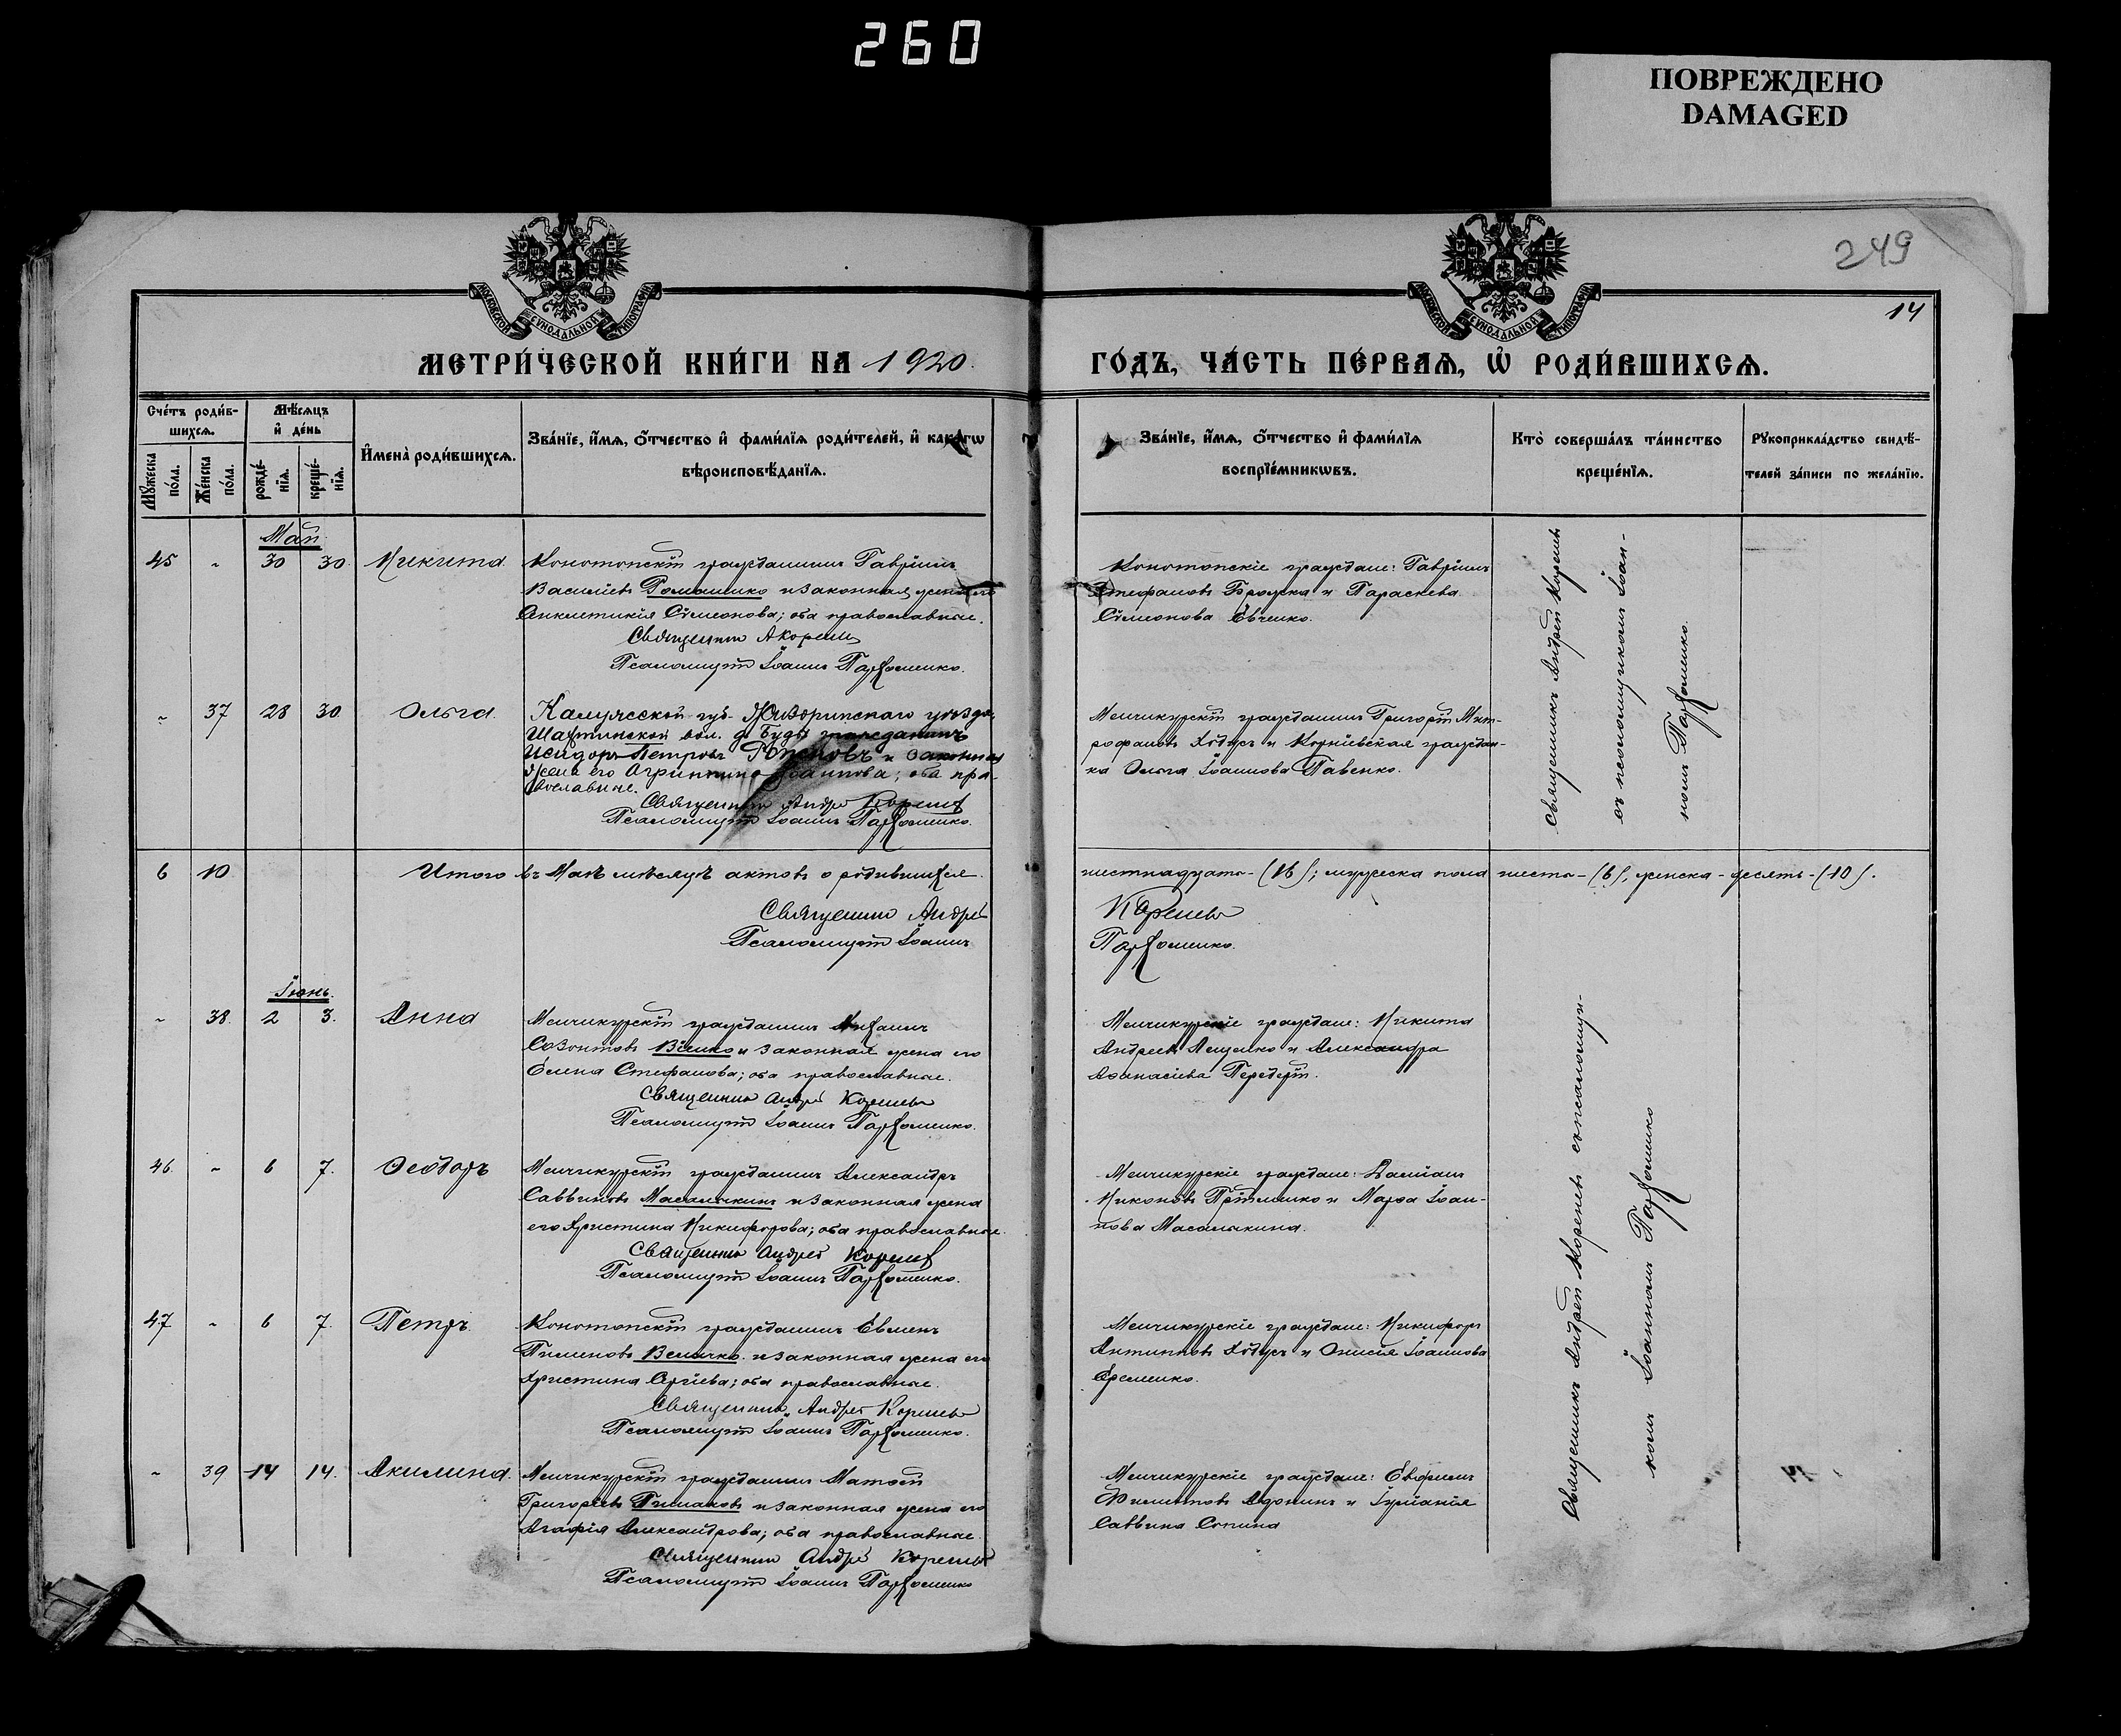 260
ПОВРЕЖДЕНО
DAMAGED
249
14
МОСКОВСКОЙ СУНОДАЛЬНОЙ ТИПОГРАФІИ
МОСКОВСКОЙ СУНОДАЛЬНОЙ ТИПОГРАФІИ
МЕТРИ́ЧЕСКОЙ КНИ́ГИ НА 1920.
ГО́ДЪ, ЧА́СТЬ ПЕ́РВАѦ, Ѡ҆ РОДИ́ВШИХСѦ.
Сче́тъ роди́в-
шихсѧ.
Мѣ́сѧцъ
и҆ де́нь
Мꙋ́жеска по́ла.
Же́нска по́ла.
рожде́-
нїѧ.
креще́-
нїѧ.
И҆мена̀ роди́вшихсѧ.
Зва́нїе, и҆́мѧ, ѻ҆́тчество и҆ фами́лїѧ роди́телей, и҆ како́гѡ
вѣроисповѣ́данїѧ.
Зва́нїе, и҆́мѧ, ѻ҆́тчество и҆ фами́лїѧ
воспрїе́мникѡвъ.
Кто̀ соверша́лъ та́инство
креще́нїѧ.
Рꙋкоприкла́дство свидѣ́-
телей за́писи по жела́нїю.
Май
45 - 30 30. Никита
Конотопскій гражданинъ Гавріилъ
Василіевъ Ромашико и законная жена его
Синклитикія Сѵмеонова; оба православные.
Священникъ А Корень
Псаломщикъ Іоаннъ Пархоменко.
Конотопскіе граждане: Гавріилъ
Стефановъ Бражка и Параскева
Сѵмеонова Евченко.
Священникъ Андрей Корень
съ псаломщикомъ Іоан-
номъ Пархоменко.
- 37 28 30 Ольга.
Калужской губ. Жиздринскаго уѣзда,
вол. д. Буды гражданинъ
Исидоръ Петровъ и законная
жена его Агриппина Іоаннова; оба пра-
вославные.
Священникъ Андрей Корень
Псаломщикъ Іоаннъ Пархоменко.
Менчикурскій гражданинъ Григорій Мит-
рофановъ Ходусъ и Корніевская граждан-
ка Ольга Іоаннова Павенко.
6 10 Итого въ Маѣ мѣсяцѣ актовъ о родившихся
шестнадцать - (16); мужеска пола шесть - (6), женска - десять - (10).
Священникъ Андрей
Корень
Псаломщикъ Іоаннъ
Пархоменко.
Іюнь.
- 38. 2 3. Анна
Менчикурскій гражданинъ Михаилъ
Созонтовъ и законная жена его
Елена Стефанова; оба православные.
Священникъ Андрей Корень
Псаломщикъ Іоаннъ Пархоменко.
Менчикурскіе граждане: Никита
Андреевъ Ященко и Александра
Аѳанасіева Передерій.
Священникъ Андрей Корень съ псаломщи-
комъ Іоанномъ Пархоменко
46. - 6 7. Ѳеодоръ
Менчикурскій гражданинъ Александръ
Саввиновъ Масалыкинъ и законная жена
его Христина Никифорова; оба православные.
Священникъ Андрей Корень
Псаломщикъ Іоаннъ Пархоменко.
Менчикурскіе граждане: Даміанъ
Никоновъ и Марѳа Іоан-
нова Масалыкина.
47 - 6 7. Петръ.
Конотопскій гражданинъ Евменъ
Пименовъ Величко и законная жена его
Христина Сергіева; оба православные.
Священникъ Андрей Корень
Псаломщикъ Іоаннъ Пархоменко.
Менчикурскіе граждане: Никифоръ
Антиповъ Ходусъ и Онисія Іоаннова
Еременко.
- 39 14 14. Акилина.
Менчикурскій гражданинъ Матѳей
Григоріевъ и законная жена его
Агафія Александрова; оба православные.
Священникъ Андрей Корень
Псаломщикъ Іоаннъ Пархоменко
Менчикурскіе граждане: Евфимъ
Филиповъ Адонинъ и Іуліанія
Саввина Сопина